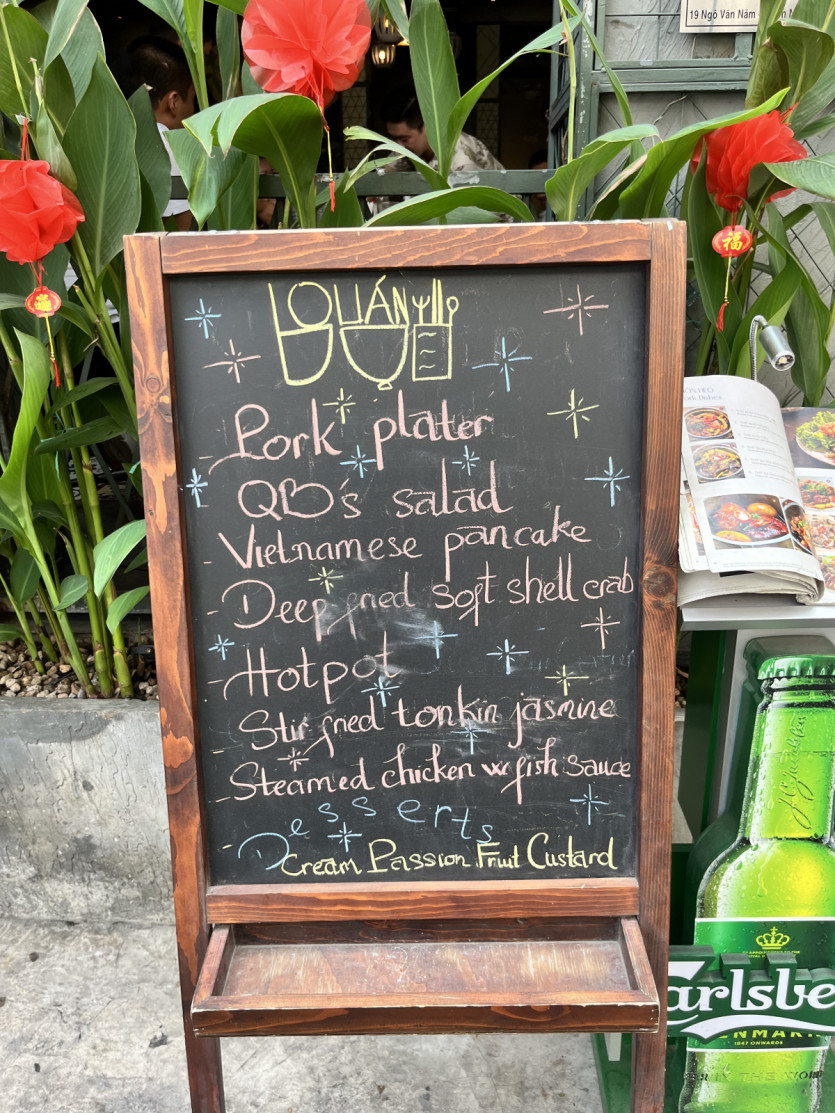 19 Ngô Văn Năm
QUÁN
- Pork plater
QB's salad
- Vietnamese pancake
- Deep fried soft shell crab
- Hotpot
- Stir fried tonkin jasmine
- Steamed chicken w fish sauce
Desserts
- Cream Passion Fruit Custard
福
福
arlsbe
1847 ONWARDS